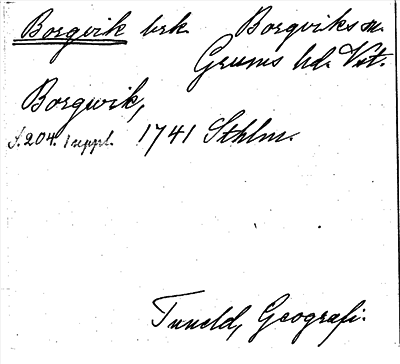 Borgvik brk. Borgviks sn.
Grums hd. Vrt.
Borgwik,
s. 204. 1 uppl. 1741 Sthlm.
Tuneld, Geografi.